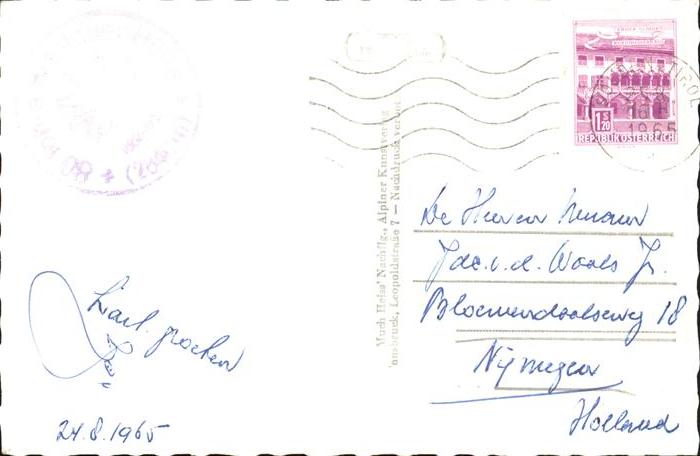 REPUBLIK ÖSTERREICH
1 S 20
1965
Much Heiss' Nachflg., Alpiner Kunstverlag
Innsbruck, Leopoldstraße 7 — Nachdruck verboten
De Heeren
Jac. v. d. Waals Jr.
Bloemendaalseweg 18
Nijmegen
Holland
Hart. groeten
24.8.1965